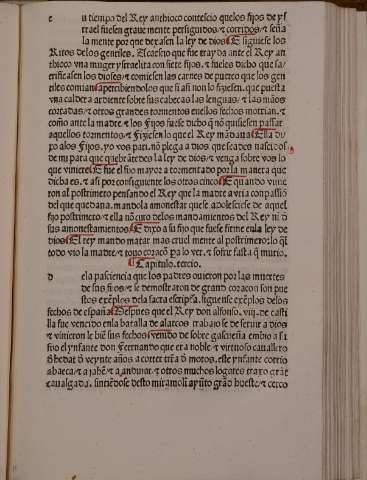 e n tiempo del Rey anthioco contescio quelos fijos de ys
rael fuesen graue mente persiguidos & corridos & seña
la mente por que dexasen la ley de dios & siguiese los
Ritos delos gentiles. Et caeso que fue trayda ante el Rey an
thioco vna muger ysraelita con siete fijos. & fueles dicho que sa
crificasen los dioses & comiesen las carnes de puerco que los gen
tiles comian apercibiendolos que si asi non lo fiziesen. que puesta
vna caldera ardiente sobre sus cabeças las lenguas / & las mãos
cortadas / & otros grandes tormentos enellos fechos morrian. &
como ante la madre & los fijos fuese dicho q̃ no quisiesen passar
aquellos tormentos & fiziesen lo que el Rey mãdaua Ella di
xo alos fijos. yo vos pari. nõ plega a dios que seades nascidos
de mi para que quebrãtedes la ley de dios & venga sobre vos lo
que viniere E fue el fijo mayor atormentado por la manera que
dicha es. & asi por consiguiente los otros cinco E quando vinie
ron al postrimero pensando el Rey que la madre auria compassiõ
del que quedaua. mandola amonestar que se adolesciese de aquel
fijo postrimero & ella nõ curo delos mandamientos del Rey ni d̃
sus amonestamientos E dixo a su fijo que fuese firme enla ley de
dios El rey mando matar mas cruel mente al postrimero: lo q̃l
todo vio la madre & touo coraçõn pa lo ver. & sofrir fasta q̃ murio.
Capitulo. tercio.
d e la pasciencia que los padres ouieron por las muertes
de sus fijos & le demostraron de grand coraçon son pue
stos exẽplos dela sacra escriptã. siguense exẽplos delos
fechos de españa Despues que el Rey don alfonso. viij. de casti
lla fue vencido enla batalla de alarcos trabaio se de seruir a dios
& vinieron le biẽ sus fechos veniẽdo de sobre gascueña embio a su
fijo el ynfante don Fernando que era noble & virtuoso cauallero
d̃ hedat d̃ veynte años a correr trã d̃ moros. este ynfante corrio
abaeça & a jahẽ & a andujar & otros muchos logares traxo grãt
caualgada. sintiẽdose desto miramoli ayũto grãd hueste / & cerco